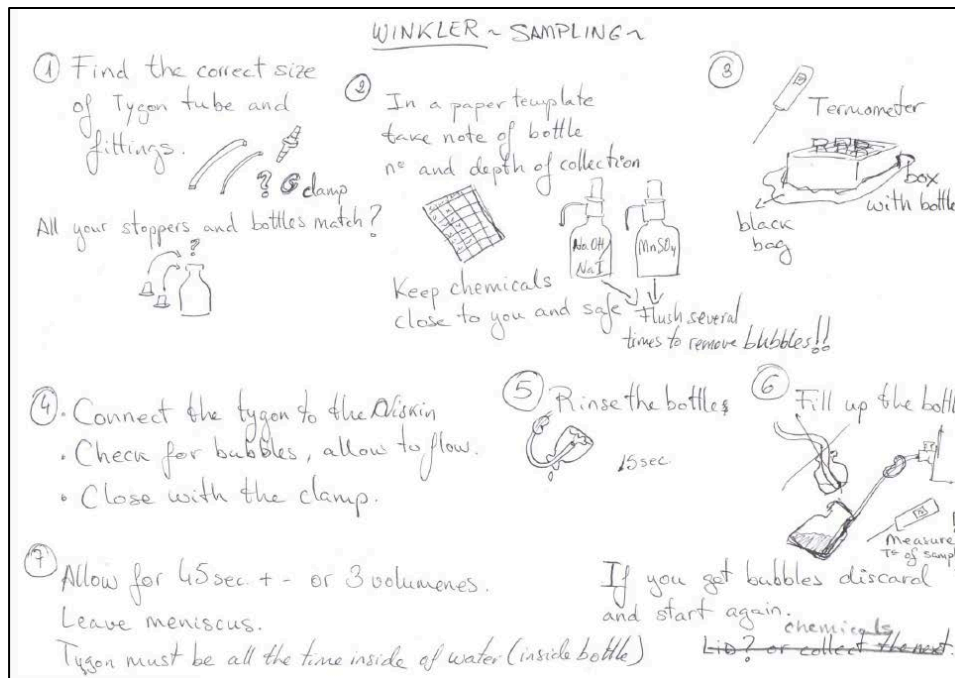 WINKLER ~ SAMPLING ~
① Find the correct size
of Tygon tube and
fittings.
? clamp
All your stoppers and bottles match?
?
② In a paper template
take note of bottle
nº and depth of collection
Na.OH/
NaI
MnSO4
Keep chemicals
close to you and safe
Flush several
times to remove bubbles!!
③
Termometer
box
with bottle
black
bag
④ · Connect the tygon to the Niskin
· Check for bubbles, allow to flow.
· Close with the clamp.
⑤ Rinse the bottles
15 sec
⑥ Fill up the bottl
Measure
Tº of sampl
⑦ Allow for 45 sec. + - or 3 volumenes.
Leave meniscus.
Tygon must be all the time inside of water (inside bottle)
If you get bubbles discard
and start again.
chemicals
LID? or collect the next.